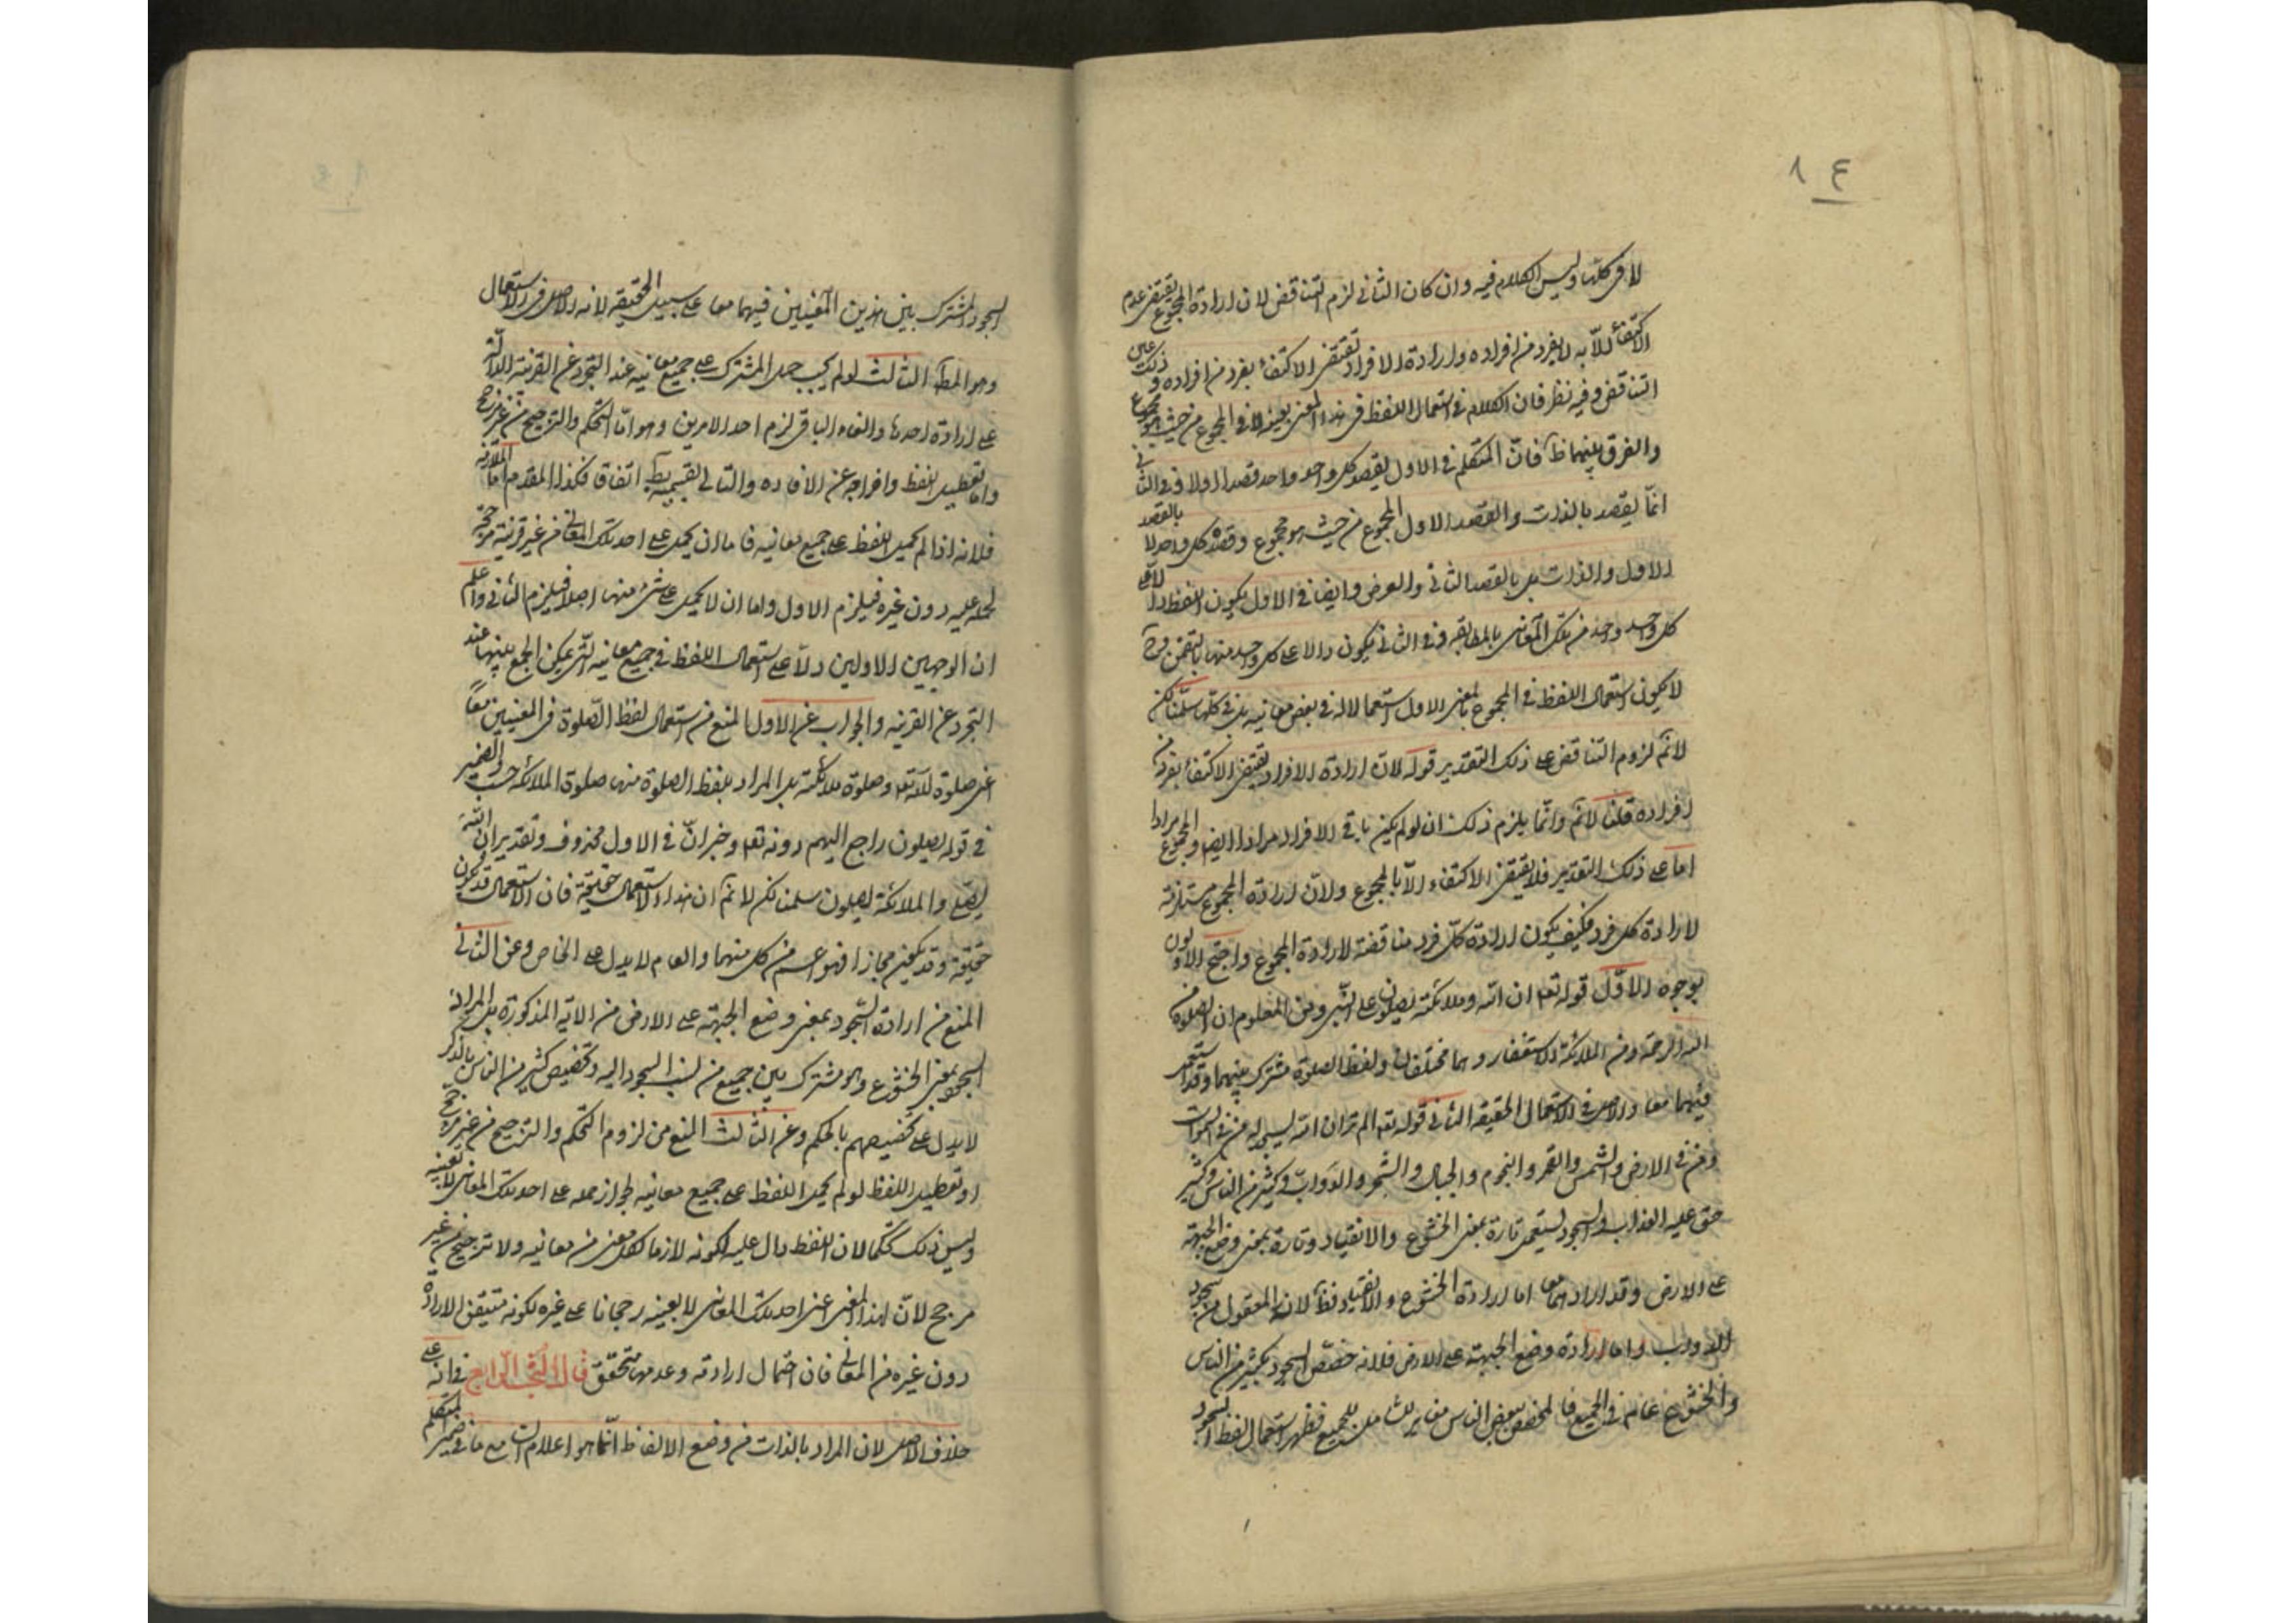 ١٤
لا فى كلها وليس الكلام فيه وان كان الثانى لزم التناقض لان ارادة المجموع يقتضى عدم
الاكتفاء الا به لا بفرد من افراده وارادة الافراد تقتضى الاكتفاء بفرد من افراده وذلك عين
التناقض وفيه نظر فان الكلام فى استعمال اللفظ فى هذا المعنى بعينه لا فى المجموع من حيث هو مجموع
والفرق بينهما ظ فان المتكلم فى الاول يقصد كل واحد واحد قصدا اولا وفى الثانى
انما يقصد بالذات والقصد الاول المجموع من حيث هو مجموع وقصده كل واحد لا بالقصد
الاول والذات بل بالقصد الثانى والعرض وايضا فى الاول يكون اللفظ دالا على
كل واحد واحد من تلك المعانى بالمطابقه وفى الثانى يكون دالا على كل واحد منها بالتضمن وح
لا يكون استعمال اللفظ فى المجموع بالمعنى الاول استعمالا له فى بعض معانيه بل فى كلها سلمنا لكن
لا نم لزوم التناقض على ذلك التقدير قوله لان ارادة الافراد يقتضى الاكتفاء بفرد من
افراده قلنا لا نم وانما يلزم ذلك ان لو لم يكن باقى الافراد مرادا ايضا والمجموع مرادا
اما على ذلك التقدير فلا يقتضى الاكتفاء الا بالمجموع ولان ارادة المجموع مستلزمة
لارادة كل فرد فكيف يكون ارادة كل فرد مناقضة لارادة المجموع واحتج الاولون
بوجوه الاول قوله تع ان الله وملائكته يصلون على النبى ومن المعلوم ان الصلوة من
الله الرحمة ومن الملائكة الاستغفار وهما مختلفان ولفظ الصلوة مشترك بينهما وقد استعمل
فيهما معا والاصل فى الاستعمال الحقيقه الثانى قوله تع الم تر ان الله يسجد له من فى السموات
ومن فى الارض والشمس والقمر والنجوم والجبال والشجر والدواب وكثير من الناس وكثير
حق عليه العذاب والسجود يستعمل تارة بمعنى الخشوع والانقياد وتارة بمعنى وضع الجبهة
على الارض وقد ارادهما معا اما ارادة الخشوع والانقياد فظ لانه المعقول من سجود
الدواب واما ارادة وضع الجبهة على الارض فلانه خصص السجود بكثير من الناس
والخشوع عام فى الجميع فالمخصص ببعض الناس مغاير للجميع فظهر استعمال لفظ السجود
السجود المشترك بين هذين المعنيين فيهما معا على سبيل الحقيقه لانه الاصل فى الاستعمال
وهو المطلـ الثالث لو لم يجب حمل المشترك على جميع معانيه عند التجرد عن القرينة الدالة
على ارادة احدها والغاء الباقى لزم احد الامرين وهو اما التحكم والترجيح من غير مرجح
واما تعطيل اللفظ واخراجه عن الافاده والتالى بقسميه بط اتفاقا فكذا المقدم اما الملازمة
فلانه اذا لم يحمل اللفظ على جميع معانيه فاما ان يحمل على احد تلك المعانى من غير قرينة مرجحة
لحمله عليه دون غيره فيلزم الاول واما ان لا يحمل على شئ منها اصلا فيلزم الثانى واعلم
ان الوجهين الاولين دلا على استعمال اللفظ فى جميع معانيه التى يمكن الجمع بينها عند
التجرد عن القرينه والجواب عن الاول المنع من استعمال لفظ الصلوة فى المعنيين معا
اعنى صلوة الله تع وصلوة ملائكته بل المراد بلفظ الصلوة منها صلوة الملائكة حسب والضمير
فى قوله يصلون راجع اليهم دونه تع وخبر ان فى الاول محذوف وتقديره ان الله
يصلى والملائكة يصلون سلمنا لكن لا نم ان هذا الاستعمال حقيقة فان الاستعمال قد يكون
حقيقة وقد يكون مجازا فهو اعم من كل منهما والعام لا يدل على الخاص وعن الثانى
المنع من ارادة السجود بمعنى وضع الجبهة على الارض من الاية المذكورة بل المراد
السجود بمعنى الخشوع وهو مشترك بين جميع من نسب السجود اليه وتخصيص كثير من الناس بالذكر
لا يدل على تخصيصهم بالحكم وعن الثالث المنع من لزوم التحكم والترجيح من غير مرجح
او تعطيل اللفظ لو لم يحمل اللفظ على جميع معانيه لجواز حمله على احد تلك المعانى لا بعينه
وليس ذلك تحكما لان اللفظ دال عليه لكونه لازما لكل معنى من معانيه ولا ترجيح من غير
مرجح لان لهذا المعنى اعنى احد تلك المعانى لا بعينه رجحانا على غيره لكونه متيقن الارادة
دون غيره من المعانى فان احتمال ارادته وعدمها متحقق قال البحث الرابع فى انه على
خلاف الاصل لان المراد بالذات من وضع الالفاظ انما هو اعلام السامع ما فى ضمير المتكلم